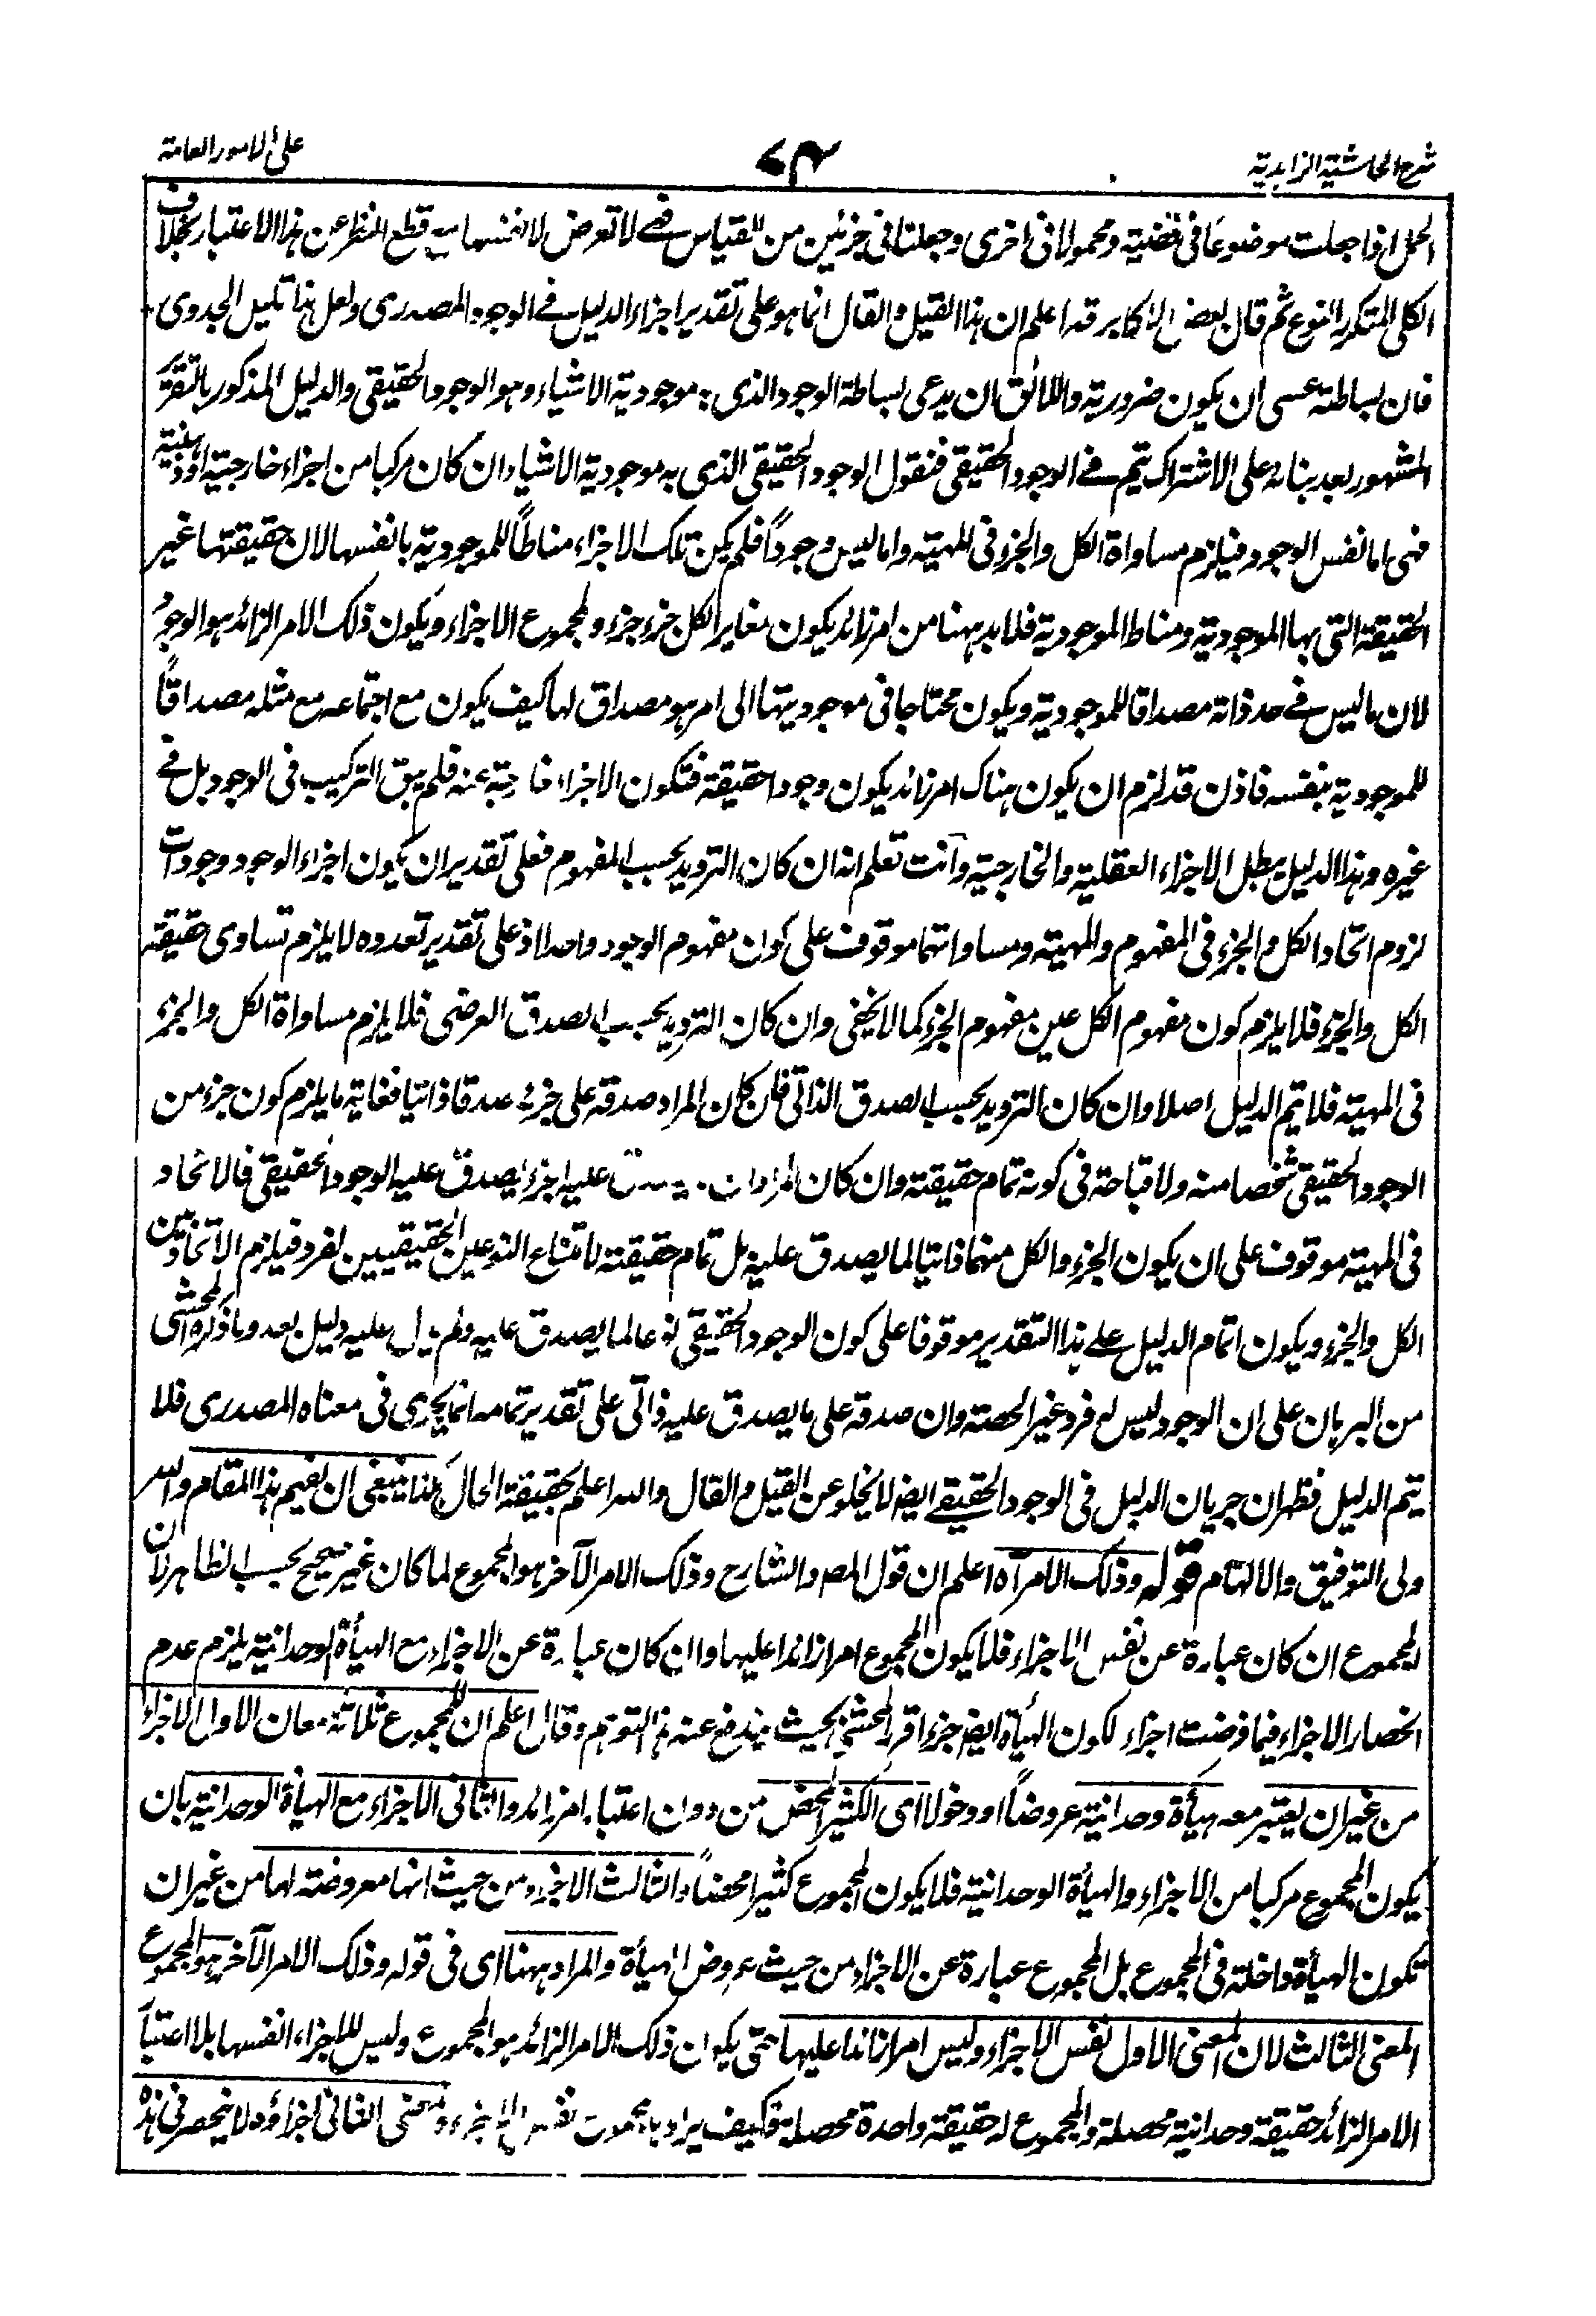 شرح الحاشية الزاهدية
٧٤
على الامور العامة
الحمل اذا جعلت موضوعا فى قضية ومحمولا فى اخرى وجعلتا فى جزئين من القياس فهى لا تعرض لانفسها مع قطع النظر عن هذا الاعتبار بخلاف
الكلى المتكرر النوع ثم قال بعض الاكابر قد اعلم ان هذا القيل والقال انما هو على تقدير اجراء الدليل فى الوجود المصدرى ولعل هذا قليل الجدوى
فان بساطته عسى ان يكون ضرورية واللائق ان يدعى بساطة الوجود الذى به موجودية الاشياء وهو الوجود الحقيقى والدليل المذكور بالتقرير
المشهور بعد بنائه على الاشتراك يتم فى الوجود الحقيقى فنقول الوجود الحقيقى الذى به موجودية الاشياء ان كان مركبا من اجزاء خارجية او ذهنية
فهى اما نفس الوجود فيلزم مساواة الكل والجزء فى المهية واما ليس وجوداً فلم يكن تلك الاجزاء مناطاً للموجودية بانفسها لان حقيقتها غير
الحقيقة التى بها الموجودية ومناط الموجودية فلا بد ههنا من امر زائد يكون مغاير الكل جزء جزء ولمجموع الاجزاء ويكون ذلك الامر الزائد هو الوجود
لان ما ليس فى حد ذاته مصداقا للموجودية ويكون محتاجا فى موجوديتها الى امر هو مصداق لها كيف يكون مع اجتماعه مع مثله مصداقاً
للموجودية بنفسه فاذن قد لزم ان يكون هناك امر زائد يكون وجودا حقيقة فتكون الاجزاء خارجة عنه فلم يبق التركيب فى الوجود بل فى
غيره وهذا الدليل يبطل الاجزاء العقلية والخارجية وانت تعلم انه ان كان الترديد بحسب المفهوم فعلى تقدير ان يكون اجزاء الوجود وجودات
لزوم اتحاد الكل والجزء فى المفهوم والمهية ومساواتهما موقوف على كون مفهوم الوجود واحدا اذ على تقدير تعدده لا يلزم تساوى حقيقة
الكل والجزء فلا يلزم كون مفهوم الكل عين مفهوم الجزء كما لا يخفى وان كان الترديد بحسب الصدق العرضى فلا يلزم مساواة الكل والجزء
فى المهية فلا يتم الدليل اصلا وان كان الترديد بحسب الصدق الذاتى فان كان المراد صدقه على جزئه صدقا ذاتيا فغاية ما يلزم كون جزء من
الوجود الحقيقى شخصا منه ولا قباحة فى كونه تمام حقيقته وان كان المراد ان عليه اجزاء يصدق عليه الوجود الحقيقى فالاتحاد
فى المهية موقوف على ان يكون الجزء والكل منهما ذاتيا لما يصدق عليه بل تمام حقيقته لامتناع النوعين الحقيقيين لفرد فيلزم الاتحاد بين
الكل والجزء ويكون اتمام الدليل على هذا التقدير موقوفا على كون الوجود الحقيقى نوعا لما يصدق عليه ولم يدل عليه دليل بعد وما ذكره المحشى
من البرهان على ان الوجود ليس له فرد غير الحصة وان صدقه على ما يصدق عليه ذاتى على تقدير تمامه انما يجرى فى معناه المصدرى فلا
يتم الدليل فظهر ان جريان الدليل فى الوجود الحقيقى ايضا لا يخلو عن القيل والقال والله اعلم بحقيقة الحال هكذا ينبغى ان يفهم هذا المقام والله
ولى التوفيق والالهام قوله وذلك الامر آه اعلم ان قول المص والشارح وذلك الامر الآخر هو المجموع لما كان غير صحيح بحسب الظاهر لان
المجموع ان كان عبارة عن نفس الاجزاء فلا يكون المجموع امرا زائدا عليها وان كان عبارة عن الاجزاء مع الهيأة الوحدانية يلزم عدم
انحصار الاجزاء فيما فرضت اجزاء لكون الهيأة ايضا جزءا قرر المحشى بحيث يندفع عنه هذا التوهم وقال اعلم ان للمجموع ثلاثة معان الاول الاجزاء
من غير ان يعتبر معه هيأة وحدانية عروضاً او دخولا اى الكثير المحض من دون اعتبار امر زائد والثانى الاجزاء مع الهيأة الوحدانية بان
يكون المجموع مركبا من الاجزاء والهيأة الوحدانية فلا يكون المجموع كثيرا محضاً والثالث الاجزاء من حيث انها معروضة لها من غير ان
تكون الهيأة داخلة فى المجموع بل المجموع عبارة عن الاجزاء من حيث عروض الهيأة والمراد ههنا اى فى قوله وذلك الامر الآخر هو المجموع
المعنى الثالث لان المعنى الاول نفس الاجزاء وليس امرا زائدا عليها حتى يكون ذلك الامر الزائد هو المجموع وليس للاجزاء انفسها بلا اعتبار
الامر الزائد حقيقة وحدانية محصلة والمجموع له حقيقة واحدة محصلة فكيف يراد بالمجموع نفس الاجزاء والمعنى الثانى اجزاؤه لا ينحصر فى هذه